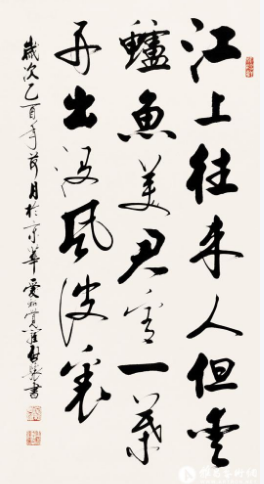 江上往来人但爱
鲈鱼美君看一叶
舟出没风波里
岁次乙酉年荷月於京华爱